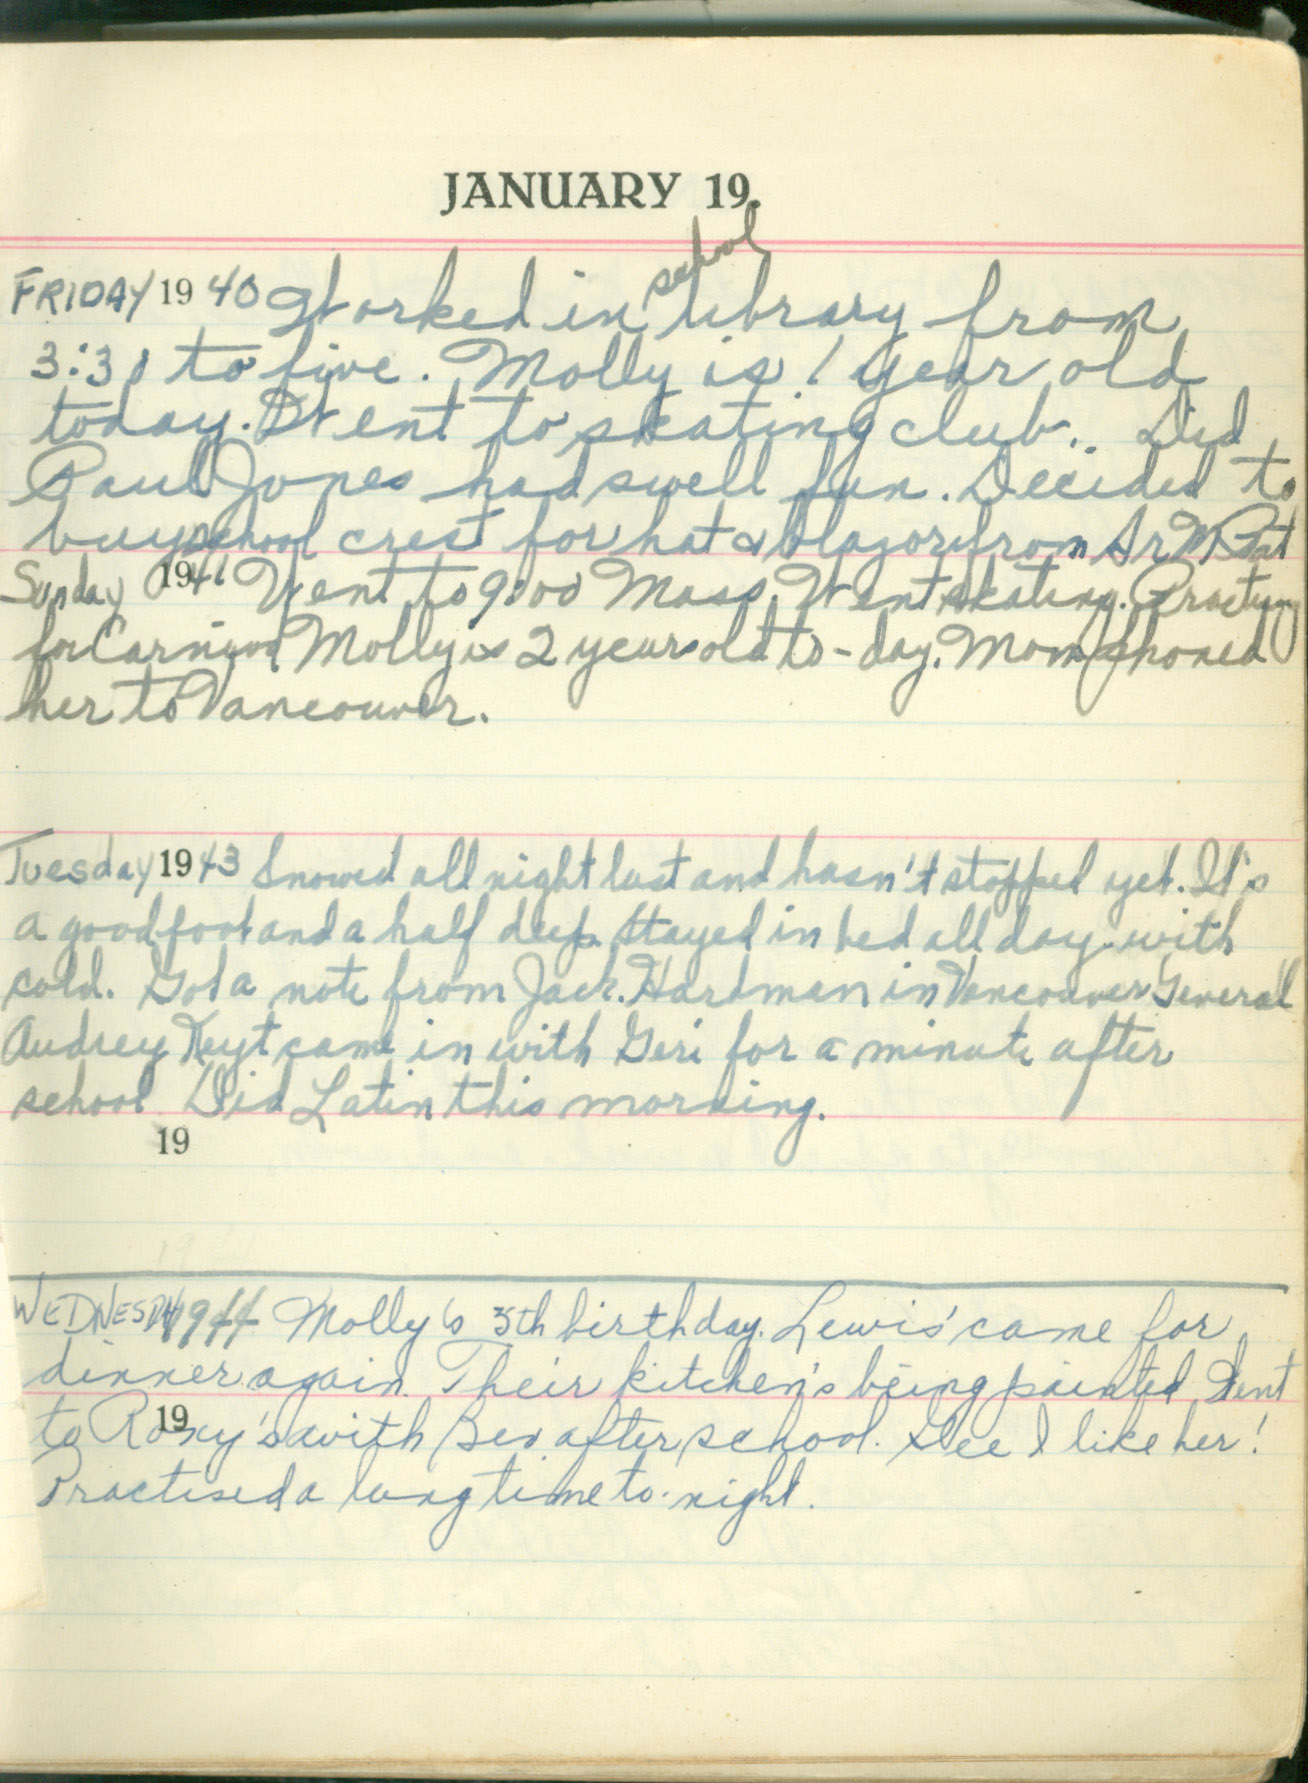 JANUARY 19.
school
FRIDAY 19 40 Worked in library from
3:30 to five. Molly is 1 year old
today. Went to skating club.. Did
Paul Jones had swell fun. Decided to
buy school crest for hat & blazor from Sr M Pat
Sunday 1941 Went to 9:00 Mass. Went skating. Practising
for Carnival Molly is 2 years old to-day. Mom phoned
her to Vancouver.
Tuesday 19 43 Snowed all night last and hasn't stopped yet. It's
a good foot and a half deep. Stayed in bed all day with
cold. Got a note from Jack. Hardman in Vancouver General
Audrey came in with Geri for a minute after
school Did Latin this morning.
19
WEDNESDAY 1944 Molly's 5th birthday. Lewis' came for
dinner again. Their kitchen's being painted Went
to Roxy's with Bev after school. Gee I like her!
19
Practised a long time to-night.